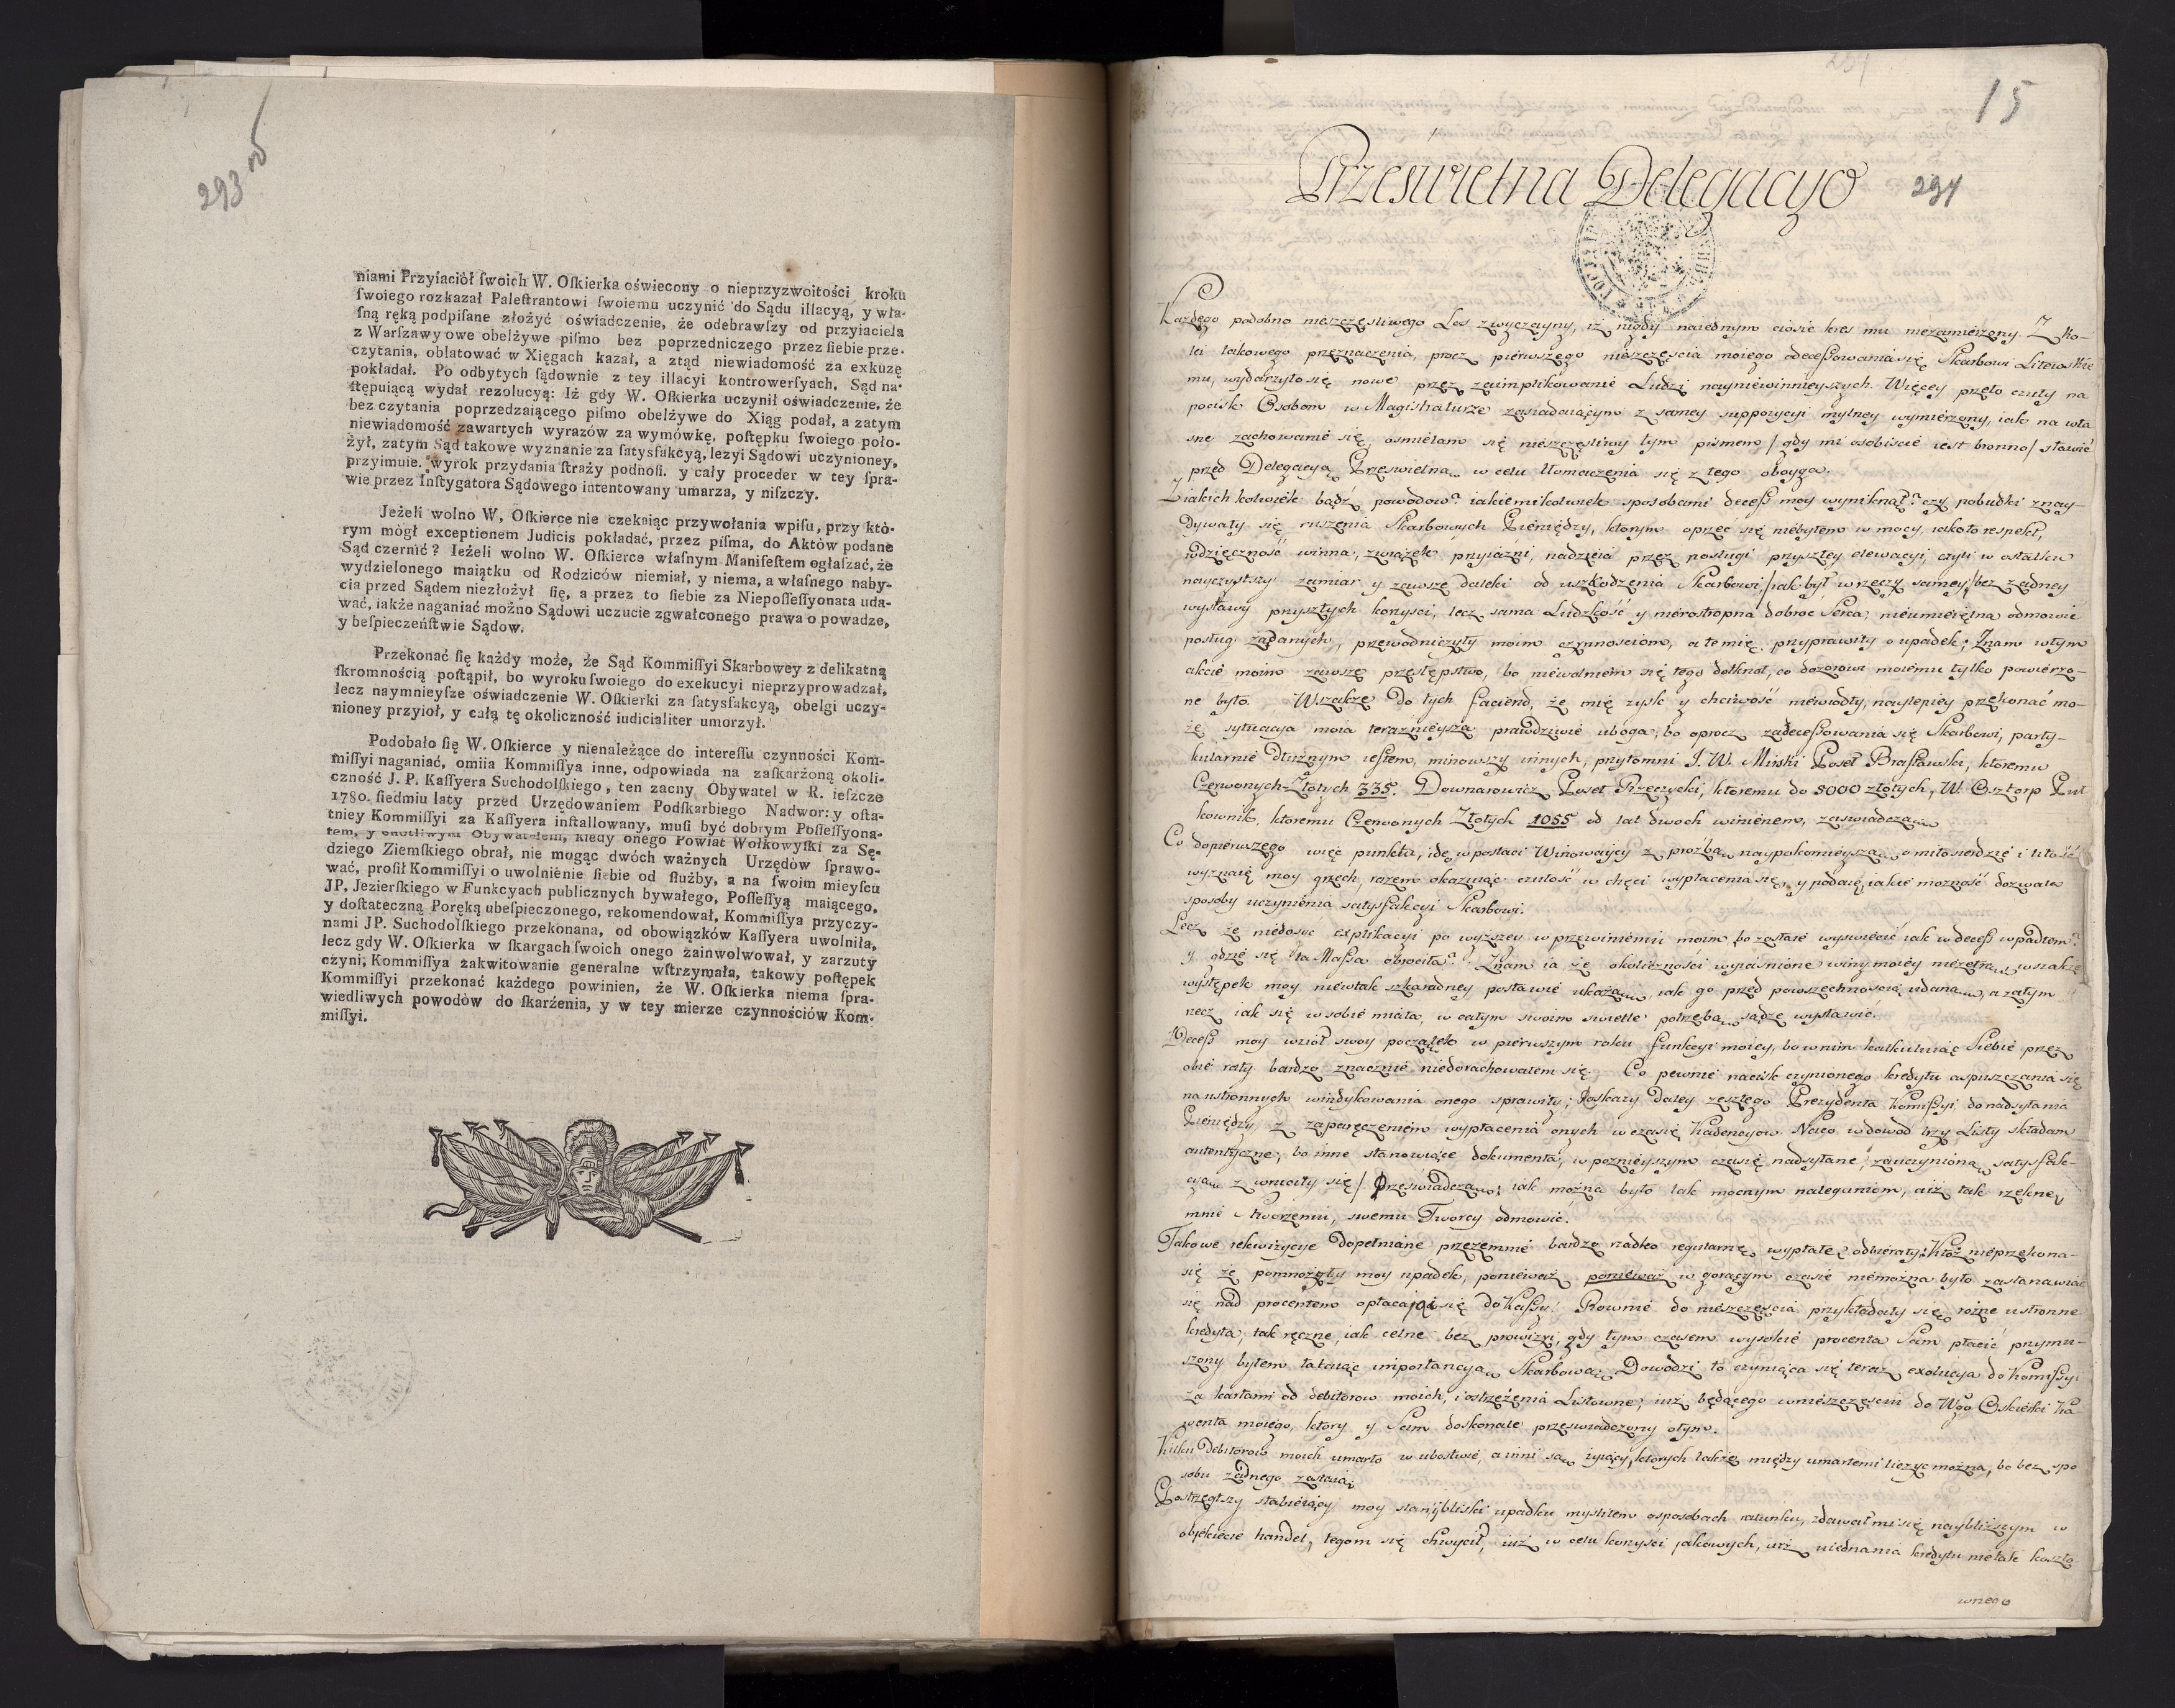 293v
niami Przyiaciół ſwoich W. Oſkierka oświecony o nieprzyzwoitości kroku
ſwoiego rozkazał Paleſtrantowi ſwoiemu uczynić do Sądu illacyą, y wła-
ſną ręką podpiſane złożyć oświadczenie, że odebrawſzy od przyiaciela
z Warſzawy owe obelżywe piſmo bez poprzedniczego przez ſiebie prze-
czytania, oblatować w Xięgach kazał, a ztąd niewiadomość za exkuzę
pokładał. Po odbytych ſądownie z tey illacyi kontrowerſyach. Sąd na-
ſtępuiącą wydał rezolucyą: Iż gdy W. Oſkierka uczynił oświadczenie, że
bez czytania poprzedzaiącego piſmo obelżywe do Xiąg podał, a zatym
niewiadomość zawartych wyrazów za wymówkę, poſtępku ſwoiego poło-
żył, zatym Sąd takowe wyznanie za ſatysfakcyą, lezyi Sądowi uczynioney,
przyimuie. wyrok przydania ſtraży podnoſi. y cały proceder w tey ſpra-
wie przez Inſtygatora Sądowego intentowany umarza, y niſzczy.
Jeżeli wolno W, Oſkierce nie czekaiąc przywołania wpiſu, przy któ-
rym mógł exceptionem Judicis pokładać, przez piſma, do Aktów podane
Sąd czernić? Ieżeli wolno W. Oſkierce właſnym Manifeſtem ogłaſzać, że
wydzielonego maiątku od Rodziców niemiał, y niema, a właſnego naby-
cia przed Sądem niezłożył ſię, a przez to ſiebie za Niepoſſeſſyonata uda-
wać, iakże naganiać możno Sądowi uczucie zgwałconego prawa o powadze,
y beſpieczeńſtwie Sądow.
Przekonać ſię każdy może, że Sąd Kommiſſyi Skarbowey z delikatną
ſkromnością poſtąpił, bo wyroku ſwoiego do exekucyi nieprzyprowadzał,
lecz naymnieyſze oświadczenie W. Oſkierki za ſatysfakcyą, obelgi uczy-
nioney przyioł, y całą tę okoliczność iudicialiter umorzył.
Podobało ſię W. Oſkierce y nienależące do intereſſu czynności Kom-
miſſyi naganiać, omiia Kommiſſya inne, odpowiada na zaſkarżoną okoli-
czność J. P. Kaſſyera Suchodolſkiego, ten zacny Obywatel w R. ieſzcze
1780. ſiedmiu laty przed Urzędowaniem Podſkarbiego Nadwor: y oſta-
tniey Kommiſſyi za Kaſſyera inſtallowany, muſi być dobrym Poſſeſſyona-
tem, y cnotliwym Obywatelem, kiedy onego Powiat Wołkowyſki za Sę-
dziego Ziemſkiego obrał, nie mogąc dwóch ważnych Urzędów ſprawo-
wać, proſił Kommiſſyi o uwolnienie ſiebie od ſłużby, a na ſwoim mieyſcu
JP. Jezierſkiego w Funkcyach publicznych bywałego, Poſſeſſyą maiącego,
y doſtateczną Poręką ubeſpieczonego, rekomendował, Kommiſſya przyczy-
nami JP. Suchodolſkiego przekonana, od obowiązków Kaſſyera uwolniła,
lecz gdy W. Oſkierka w ſkargach ſwoich onego zainwolwował, y zarzuty
czyni, Kommiſſya zakwitowanie generalne wſtrzymała, takowy poſtępek
Kommiſſyi przekonać każdego powinien, że W. Oſkierka niema ſpra-
wiedliwych powodów do ſkarżenia, y w tey mierze czynnościów Kom-
miſſyi.
15
Prześwietna Delegacyo
294
Każdego podobno nieszczęśliwego Los zwyczayny, iż nigdy na iednym ciosie kres mu niezamierzony. Z ko-
lei takowego przeznaczenia, procz pierwszego nieszczęścia moiego decessowania się Skarbowi Litewskie
mu, wydarzyło się nowe przez zaimplikowanie Ludzi nayniewinnieyszych. Więcey przeto czuły na
pocisk Osobom w Magistraturze zasiadaiącym z samey suppozycyi mylney wymierzony, iak na wła
sne zachowanie się, ośmielam się nieszczęśliwy tym pismem / gdy mi osobiście iest bronno / stawić
przed Delegacyą Prześwietną w celu tłomaczenia się z tego oboyga.
Z iakich kolwiek bądź powodow? iakiemikolwiek sposobami decess moy wyniknął? czy pobudki znay-
dywały się ruszenia Skarbowych Pieniędzy, którym oprzec się niebyłem w mocy, iako to respekt,
wdzięczność winna, związek przyiaźni, nadzieia przez posługi przyszłey elewacyi, czyli w ostatku
nayczystszy zamiar y zawsze daleki od uszkodzenia Skarbowi / iak był w rzeczy samey / bez żadney
wystawy przyszłych korzyści, lecz sama Ludzkość y nierostropna dobroć Serca, nieumieiętna odmowić
posług żądanych, przewodniczyły moim czynnościom, a te mię przyprawiły o upadek; Znam w tym
akcie moim zawsze przestępstwo, bo niewolniem się tego dotknął, co dozorowi moiemu tylko powierzo-
ne było. Wszakże do tych faciend, że mię zysk y chciwość niewiodły, naylepiey przekonać mo-
że sytuacya moia teraźnieysza prawdziwie uboga, bo oprocz zadecessowania się Skarbowi, party-
kularnie dłużnym iestem, minowszy innych, przytomni J. W. Mirski Poseł Brasławski, któremu
Czerwonych Złotych 335. Downarowicz Poseł Rzeczycki, któremu do 5000 złotych, W. Osztorp Puł
kownik, któremu Czerwonych Złotych 1055 od lat dwoch winienem, zaświadczą
Co do pierwszego więc punktu, idę w postaci Winowaycy z proźbą naypokornieyszą o miłosierdzie i litość
wyznaię moy grzech, razem okazuiąc czułość w chęci wypłacenia się, y podaię iakie możność dozwala
sposoby uczynienia satysfakcyi Skarbowi.
Lecz że niedosyć explikacyi po wyższey w przewinieniu moim, bo zostaie wyświecić iak w decess wpadłem?
y gdzie się ta Massa obrociła? Znam ia że okoliczności wyiaśnione winy moiey niezetrą, wszakże
występek moy niewtak szkaradney postawie ukażą, iak go przed powszechnością udaną, a zatym
rzecz iak się w sobie miała, w całym swoim świetle potrzebą sądzę wystawić.
Decess moy wziął swoy początek w pierwszym roku funkcyi moiey, bo w nim kalkuluiąc Siebie przez
obie raty bardzo znacznie niedorachowałem się. Co pewnie nacisk czynionego kredytu a spuszczania się
na ustronnych windykowania onego sprawiły; Roskazy daley zeszłego Prezydenta Komissyi do nadsyłania
Pieniędzy z zaręczeniem wypłacenia onych w czasie Kadencyow. Na co w dowod trzy Listy składam
autentyczne, bo inne stanowiące dokumenta, w poznieyszym czasie nadsyłane, za uczynioną satysfak-
cyą zwrociły się / Przeświadczą; iak można było tak mocnym naleganiom, aiż tak rzeknę,
mnie Stworzeniu, swemu Tworcy odmowić.
Takowe rekwizycye dopełniane przezemnie bardzo rzadko regularną wypłatę odbierały. Ktoż nieprzekona-
się że pomnożyły moy upadek, ponieważ ponieważ w gorącym czasie niemożna było zastanawiać
się nad procentem opłacaiącym się do Kassy. Rownie do nieszczęścia przykładały się rożne ustronne
kredyta, tak ręczne iak celne bez prowizyi, gdy tym czasem wysokie procenta Sam płacić przymu-
szony byłem łataiąc importancyą Skarbową. Dowodzi to czyniąca się teraz exolucya do Komissyi
za kartami od debitorow moich, i ostrzeżenia Listowne, iuż będącego w nieszczęściu do Wgo Oskierki Ka-
wenta moiego, który y Sam doskonale przeświadczony o tym.
Kilku Debitorow moich umarło w ubostwie, a inni są żyiący, których także między umarłemi liczyć można, bo bez spo
sobu żadnego zostaią
Postrzegłszy słabieiący moy stan, y bliski upadku myśliłem o sposobach ratunku, zdawał mi się naybliższym w
objekcie handel, tegom się chwycił, iuż w celu korzyści jakowych, iuż uiednania kredytu nietak koszto
wnego